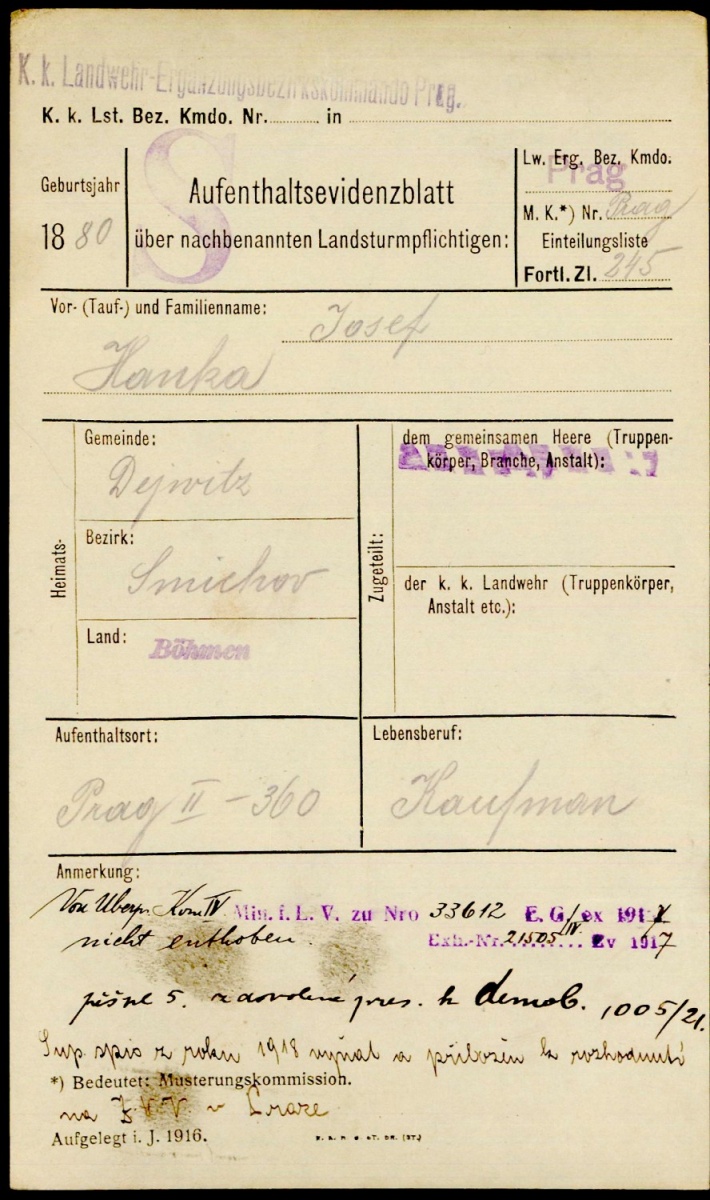 K. k. Landwehr-Ergänzungsbezirkskommando Prag.
K. k. Lst. Bez. Kmdo. Nr. in
Geburtsjahr
1880
S
Aufenthaltsevidenzblatt
über nachbenannten Landsturmpflichtigen:
Lw. Erg. Bez. Kmdo.
Prag
M. K.*) Nr. Prag
Einteilungsliste
Fortl. Zl. 245
Vor- (Tauf-) und Familienname: Josef
Hanka
Heimats-
Gemeinde:
Dejwitz
Bezirk:
Smichov
Land: Böhmen
Zugeteilt:
dem gemeinsamen Heere (Truppen-
körper, Branche, Anstalt):
der k. k. Landwehr (Truppenkörper,
Anstalt etc.):
Aufenthaltsort:
Prag II - 360
Lebensberuf:
Kaufman
Anmerkung:
Von Kom IV Min. f. L. V. zu Nro 33612 E. G/ex 191
nicht enthoben. Exh.-Nr. 21505/IV. Ev 1917
5. pres. k demob. 1005/21.
Sup. spis z roku 1918 vyňat a přiložen k rozhodnutí
*) Bedeutet: Musterungskommission.
na Z.V.V. v Praze
Aufgelegt i. J. 1916.